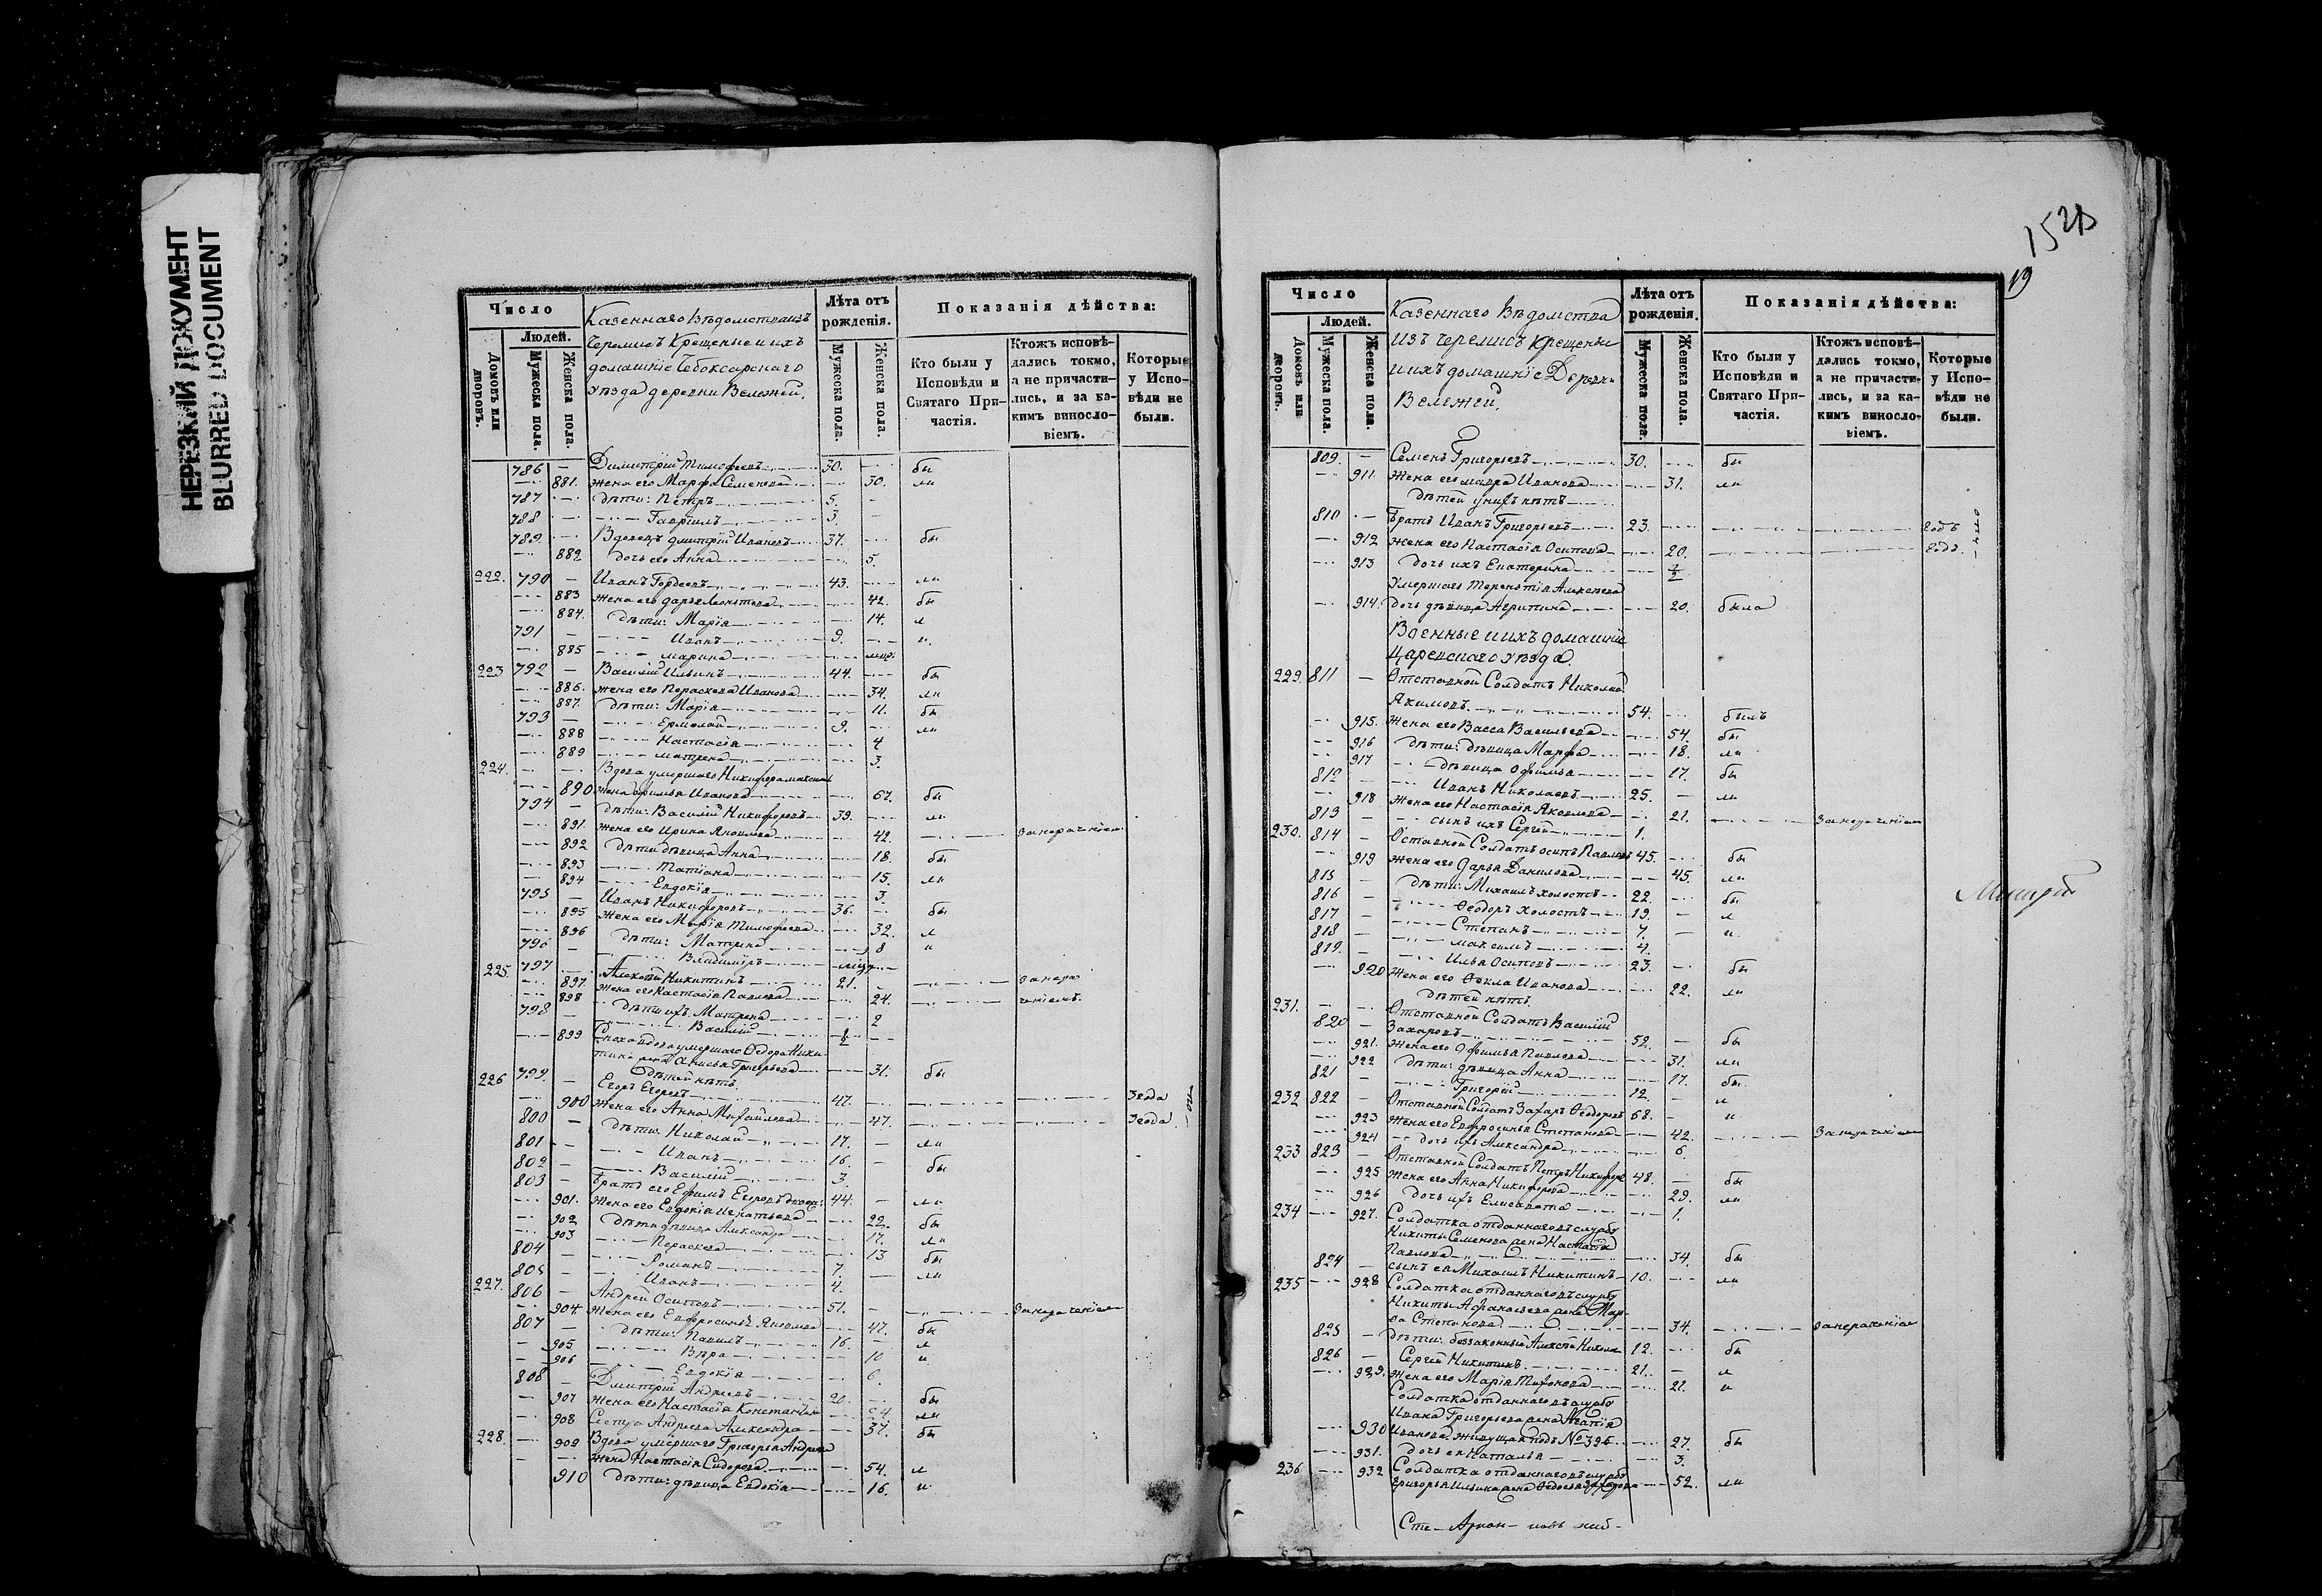 НЕРЕЗКИЙ ДОКУМЕНТ
BLURRED DOCUMENT
Число
Людей.
Домовъ или дворовъ.
Мужеска пола.
Женска пола.
Казеннаго Вѣдомства изъ
Черемисъ Крещеные и ихъ
домашніе Чебоксарскаго
Уѣзда деревни Вележей.
Лѣта отъ рожденія.
Мужеска пола.
Женска пола.
Показанія дѣйства:
Кто были у Исповѣди и Святаго Причастія.
Ктожъ исповѣдались токмо, а не причастились, и за какимъ винословіемъ.
Которые у Исповѣди не были.
786 — Димитрій Тимофеевъ 30. бы
881. Жена его Марфа Семенова 30. ли
787 дѣти: Петръ 5.
788 Гавріилъ 3.
789 Вдовецъ Дмитрій Ивановъ 37. бы
882 дочь его Анна 5.
222. 790 — Иванъ Гордеевъ 43. ли
883 Жена его Дарья 42. бы
884. дѣти: Марія 14. л
791 — Иванъ 9. и.
885 Марина
223 792 — Василій Ильинъ 44. бы
886. Жена его Параскева Иванова 34. ли
887. дѣти: Марія 11. бы
793 — Ермолай 9. ли
888 Настасія 4
889 Матрена 3.
224. Вдова умершаго Никифора
890 жена Афимья Иванова 67. бы
794 — дѣти: Василій Никифоровъ 39. ли
891. Жена его Ирина Яковлева 42.
892 дѣти дѣвица Анна 18. бы
893 Татіана 15. ли
894 Евдокія 3.
795 — Иванъ Никифоровъ 36. бы
895 Жена его Марія Тимофеева 32. л
896 дѣти: Матрена 8 и
796 — Владиміръ
225. 797 Алексѣй Никитинъ 21.
897. Жена его Настасія Павлова 24.
898 дѣти ихъ Матрена 2
798 — Василій 1/2
899 умершаго Федора
жена Анисья Григорьева 31. бы
дѣтей нѣтъ
226 799. — Егоръ Егоровъ 47. 3 года
900 Жена его Анна Михайлова 47. 3 года
800 — дѣти: Николай 17. ли
801 — Иванъ 16. бы
802 — Василій 3
803 — Братъ его Ефимъ Егоровъ 44. ли
901. Жена его Евдокія Игнатьева 22. бы
902 дѣти дѣвица Александра 17. ли
903 Параскева 13 бы
804 — Романъ 7. ли
805 — Иванъ 4.
227. 806 — Андрей Осиповъ 51.
904. Жена его Евфросинья Яковлева 47. бы
807 — дѣти: Павелъ 16. л
905 Вѣра 10 и
906 Евдокія 6.
808 — Дмитрій Андреевъ 20. бы
907 Жена его Настасія ли
908 Сестра Андреева Александра 37. бы
228. 909 Вдова умершаго Григорья Андреева
жена Настасія Сидорова 54. л
910 дѣти: дѣвица Евдокія 16. и
19
Число
Людей.
Домовъ или дворовъ.
Мужеска пола.
Женска пола.
Казеннаго Вѣдомства
изъ Черемисъ Крещеные
и ихъ домашніе Деревни
Вележей.
Лѣта отъ рожденія.
Мужеска пола.
Женска пола.
Показанія дѣйства:
Кто были у Исповѣди и Святаго Причастія.
Ктожъ исповѣдались токмо, а не причастились, и за какимъ винословіемъ.
Которые у Исповѣди не были.
809. — Семенъ Григорьевъ 30. бы
911. Жена его Мавра Иванова 31. ли
дѣтей у нихъ нѣтъ
810 — Братъ Иванъ Григорьевъ 23. годъ
912 Жена его Настасія Осипова 20. годъ.
913 Дочь ихъ Екатерина 1/2
Умершаго Терентія Алексѣева
914. Дочь дѣвица 20. была
Военные и ихъ домашніе
Царевскаго уѣзда.
229. 811 — Отставной Солдатъ Николай
Якимовъ 54. былъ
915. Жена его Васса Васильева 54. бы
916 дѣти: дѣвица Марфа 18. ли
917 дѣвица Офимья 17. бы
812 — Иванъ Николаевъ 25. — ли
918 Жена его Настасія Яковлева 21.
813 — сынъ ихъ Сергей 1.
230. 814 — Отставной Солдатъ Осипъ Павловъ 45. бы
919 Жена его Дарья Данилова 45. ли
815 — дѣти: Михаилъ холостъ 22. бы
816 — Ѳеодоръ холостъ 19. л
817 — Степанъ 7. и.
818 — Максимъ 4.
819. — Илья Осиповъ 23. бы
920 Жена его Ѳекла Иванова 22. ли
дѣтей нѣтъ
231. Отставной Солдатъ Василій
820 — Захаровъ 52. бы
921. Жена его Офимья Павлова 31. ли
922 дѣти: дѣвица Анна 17. бы
821 — Григорій 12. л
232 822 — Отставной Солдатъ Захаръ Ѳеодоровъ 68. и
923 Жена его Евфросинья Степанова 42.
924 дочь ихъ Александра 6.
233 823 — Отставной Солдатъ Петръ 48. бы
925 Жена его Анна Никифорова 29. ли
926 дочь ихъ Елисавета 1.
234 927. Солдатка отданнаго въ службу
Никиты Семенова жена Настасія
Павлова 34. бы
824 — сынъ ея Михаилъ Никитинъ 10. ли
235 928 Солдатка отданнаго въ службу
Никиты Афанасьева жена Мар-
Степанова 34.
825 — дѣти: беззаконный Алексѣй 12. бы
826 — Сергей Никитинъ 21. л
929. Жена его Марія 21. и
Солдатка отданнаго въ службу
Ивана Григорьева жена
930 Иванова живущая подъ № 396 27. бы
931. дочь ея Наталья 3.
236 932 Солдатка отданнаго въ службу
Григорья Ильина жена Ѳедосья 52. ли